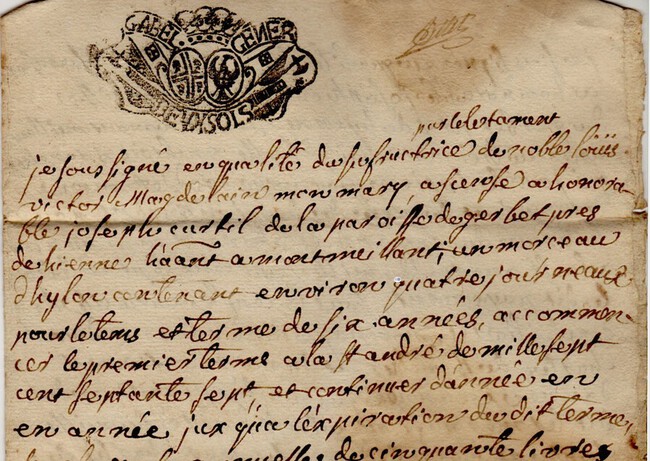 GABEL GENER
DE DI SOLS
par le letament
je soussigné en qualité d'usufructrice de noble Loüis
victor Magdelain mon mary, ascense a honora-
ble joseph curtil de la paroisse de gerbet pres
de hienne häant a montmeillant, un morceau
d'hylon contenant environ quatre journeaux
pour le tems et terme de six années, a commen-
cer le premier terme a la st andré de mille sept
cent septante sept, et continuer d'année en
en année jux'qua l'éxpiration du dit terme,
de cinquante livres